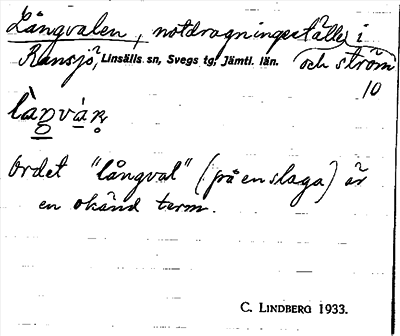 Långvalen, notdragningsställe i
Ransjö, Linsälls sn, Svegs tg, Jämtl. län. och ström
10
Ordet "långval" (på en slaga) är
en okänd term.
C. LINDBERG 1933.